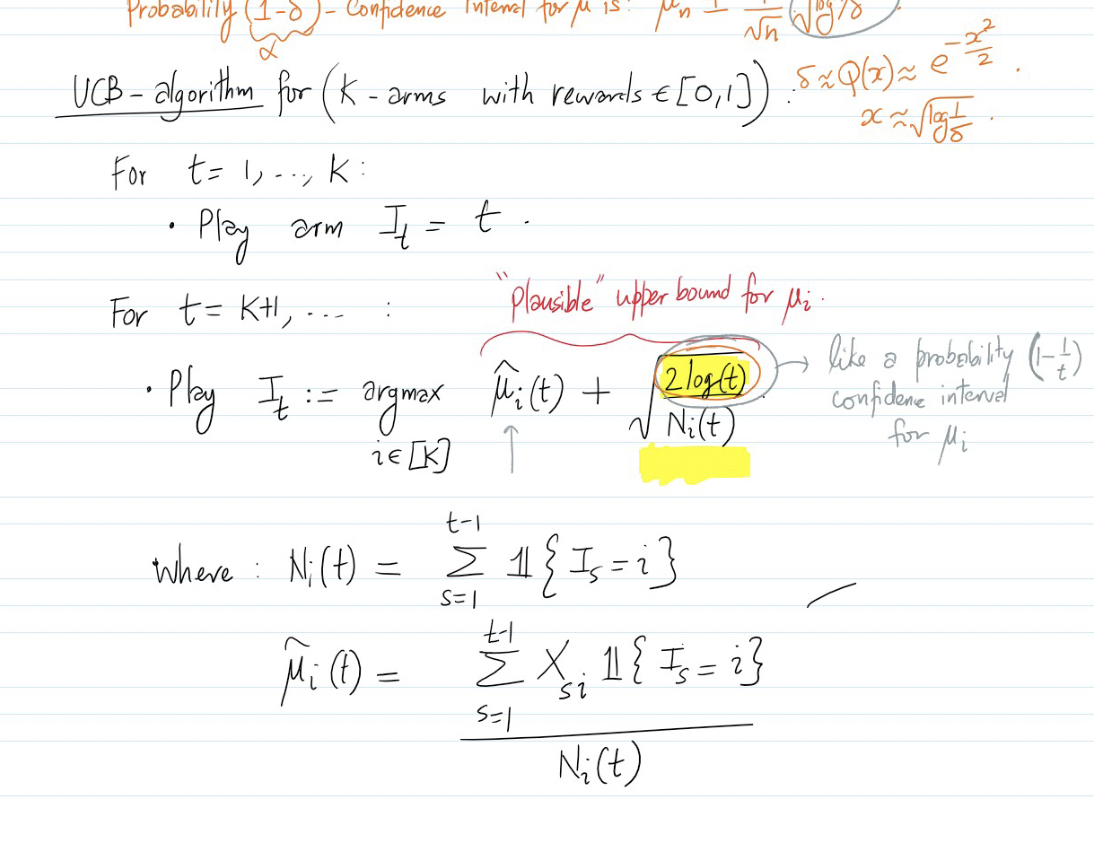 Probability (1-δ) - Confidence Interval for μ is: μ̂ₙ ± 1/√n √log 1/δ.
α
UCB-algorithm for (K-arms with rewards ∈ [0,1]) :
δ ≈ Q(x) ≈ e^{-x²/2} .
x ≈ √log 1/δ .
For t = 1, ..., K :
• Play arm I_t = t .
"plausible" upper bound for μ_i .
For t = K+1, ... :
• Play I_t := argmax_{i∈[K]} μ̂_i(t) + √(2log(t)/N_i(t))
→ like a probability (1-1/t)
confidence interval
for μ_i
Where : N_i(t) = Σ_{s=1}^{t-1} 𝟙{I_s = i}
μ̂_i(t) = Σ_{s=1}^{t-1} X_{si} 𝟙{I_s = i} / N_i(t)